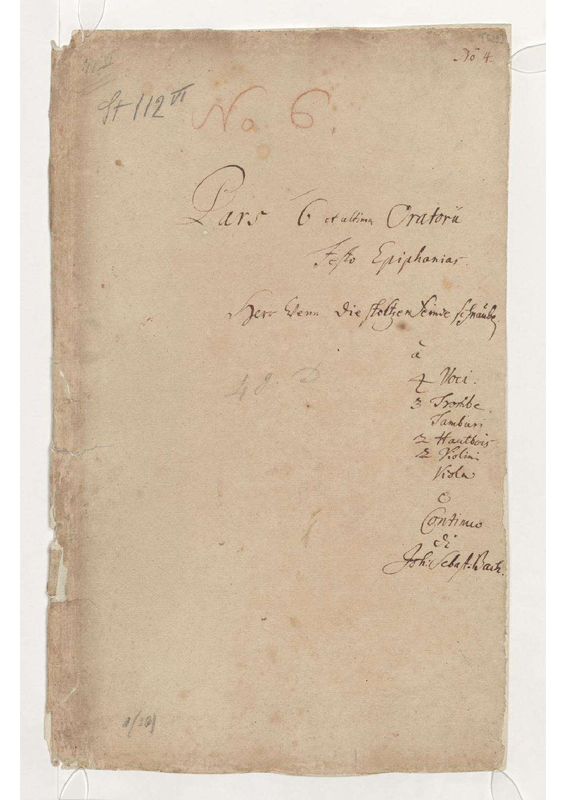 No 4.
St 112 VI
No 6.
Pars 6 et ultima Oratorii
Festo Epiphanias
Herr wenn die stoltzen Feinde schnauben
à
4 Voci.
3 Trombe.
Tamburi
2 Hautbois
2 Violini
Viola
e
Continuo
di
Joh: Sebast: Bach.